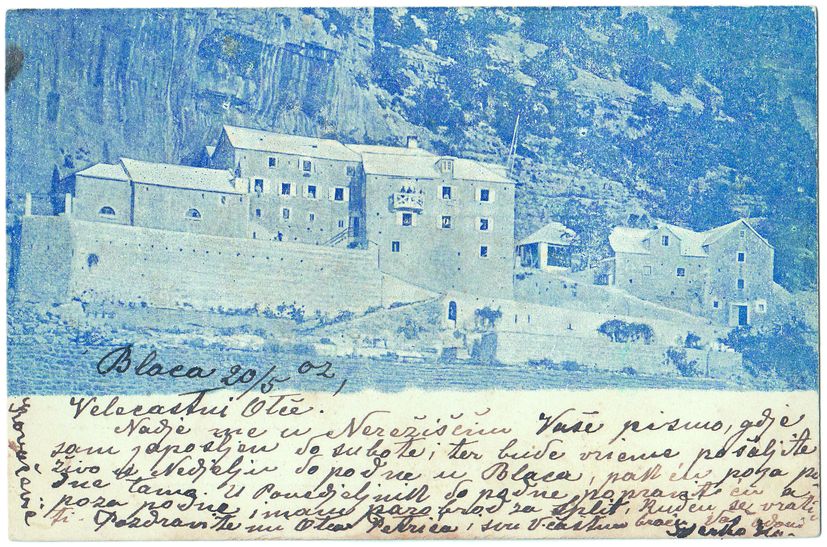 Blaca 20/5 02,
Velecastni Otče.
Nadje me u Nerežišćim Vaše pismo, gdje
sam zaposljen do subote, ter bude vrieme pošaljite
živo u Nedjelju do podne u Blaca, pak ću poza po
dne tamo. U Ponedjeljnik do podne popravit ću a
poza podne, imam parobrod za Split, kuđen se vrati
ti. Pozdravite mi Otca Petrića, i svu braću